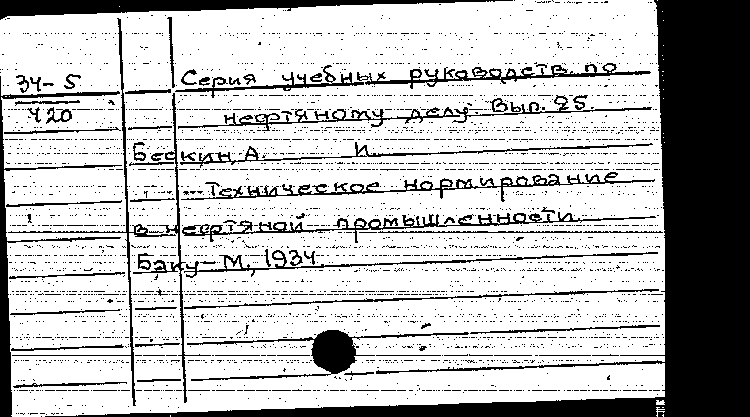 34-5
420
Серия учебных руководств по
нефтяному делу. Вып. 25.
Бескин, А. И.
Техническое нормирование
в нефтяной промышленности.
Баку-М., 1934